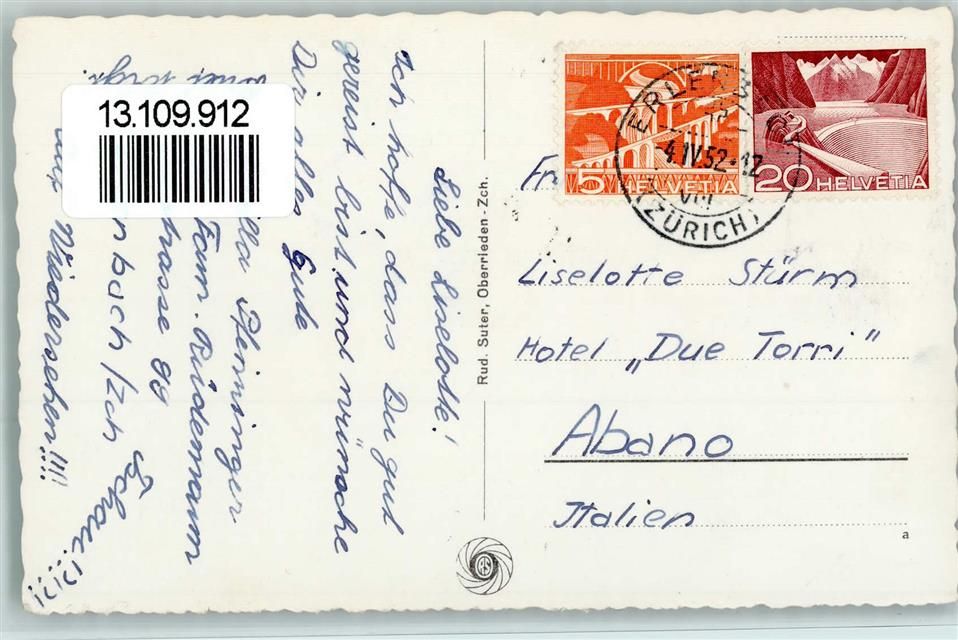 Liebe Liselotte!
Ich hoffe, dass Du gut
gereist bist und wünsche
Dir alles Gute
lla Pfenninger
Fam. Rüdemann
trasse 88
nbach/Zch
Wiedersehen!!!!
Tschau....
13.109.912
Rud. Suter, Oberrieden-Zch.
5 HELVETIA
20 HELVETIA
ERLENB
-4.IV.52-12
VIII
(ZÜRICH)
Fr
Liselotte Stürm
Hotel „Due Torri"
Abano
Italien
a